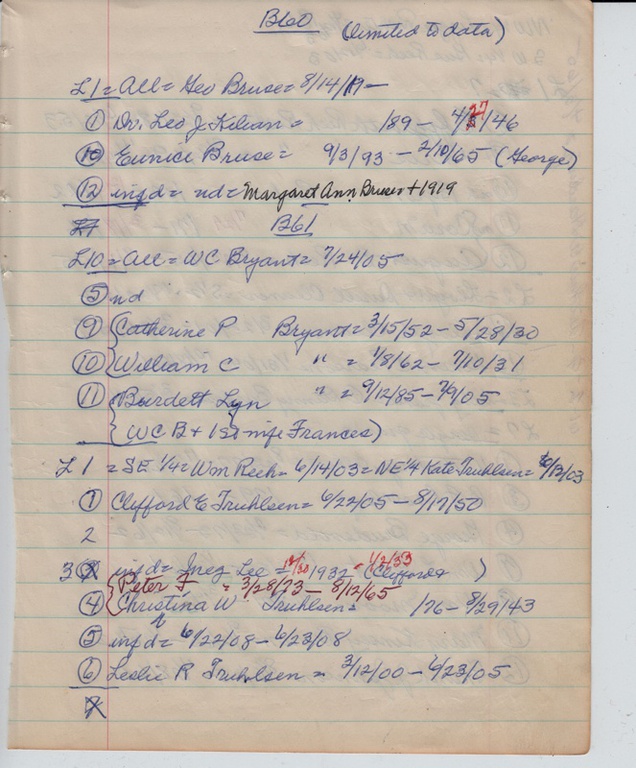 B60 (limited to data)
L1 = All = Geo Bruse = 8/14/19 —
① Dr. Leo J. Kilian = /89 — 4/27/46
⑩ Eunice Bruse = 9/3/93 — 2/10/65 (George)
⑫ infd = nd = Margaret Ann Bruse + 1919
B61
L10 = All = WC Bryant = 7/24/05
⑤ nd
⑨ {Catherine P Bryant = 3/15/52 — 5/28/30
⑩ {William C " = 1/8/62 — 7/10/31
⑪ {Burdett Lyn " = 9/12/85 — 7/9/05
{(WC B + 1st wife Frances)
L1 = SE 1/4 = Wm Rech = 6/14/03 = NE 1/4 Kate Truhlsen = /13/03
① Clifford E Truhlsen = 6/22/05 — 8/17/50
2
3 infd = Inez Lee = 12/30 1932 — 1/2/33 (Clifford )
{Peter F = 3/28/73 — 8/12/65
④ {Christina W Truhlsen = /76 — 8/29/43
⑤ infd = 6/22/08 — 6/23/08
⑥ Leslie R Truhlsen = 3/12/00 — 4/23/05